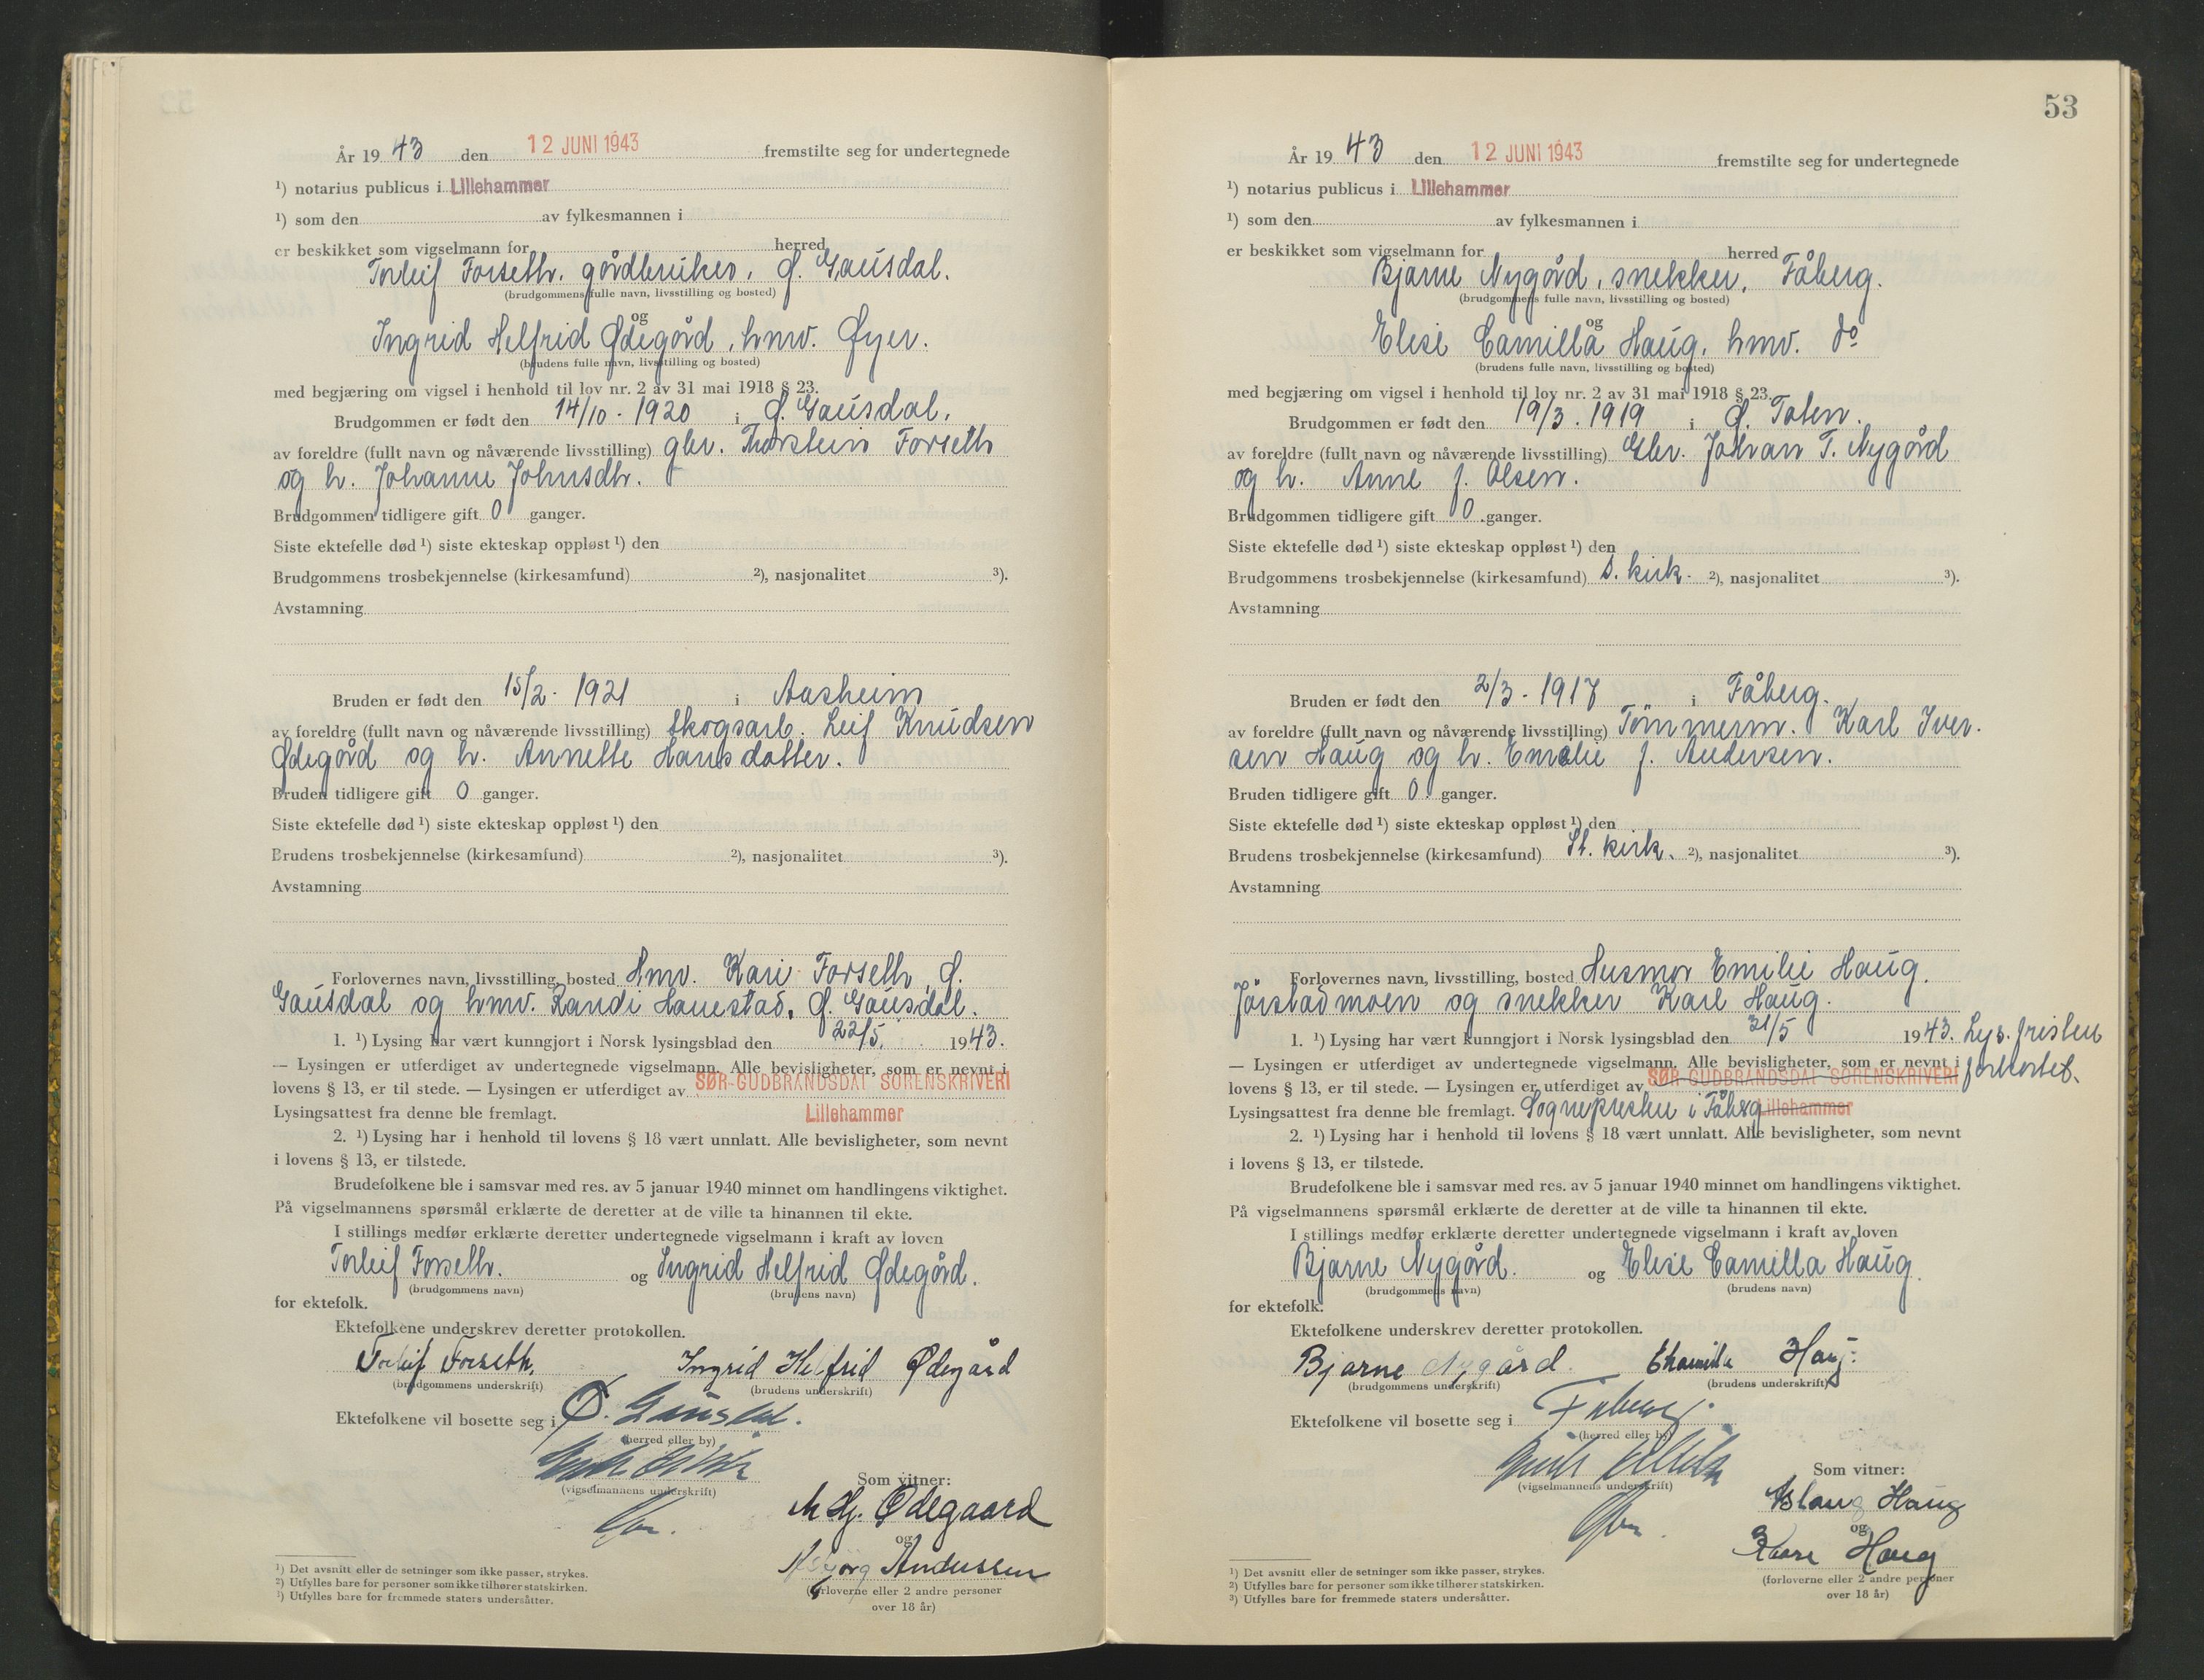 År 19 43 den 12 JUNI 1943 fremstilte seg for undertegnede
¹) notarius publicus i Lillehammer
¹) som den av fylkesmannen i
er beskikket som vigselmann for herred
Torleif Forseth, gårdbruker, Ø. Gausdal.
(brudgommens fulle navn, livsstilling og bosted)
og
Ingrid Helfrid Ødegård, hmv. Øyer.
(brudens fulle navn, livsstilling og bosted)
med begjæring om vigsel i henhold til lov nr. 2 av 31 mai 1918 § 23.
Brudgommen er født den 14/10 - 1920 i Ø. Gausdal,
av foreldre (fullt navn og nåværende livsstilling) gbr. Thorstein Forseth
og h. Johanne Johnsdtr.
Brudgommen tidligere gift 0 ganger.
Siste ektefelle død ¹) siste ekteskap oppløst ¹) den
Brudgommens trosbekjennelse (kirkesamfund) ²), nasjonalitet ³).
Avstamning
Bruden er født den 15/2 - 1921 i Aasheim
av foreldre (fullt navn og nåværende livsstilling) Skogsarb. Leif Knudsen
Ødegård og h. Annette Hansdatter.
Bruden tidligere gift 0 ganger.
Siste ektefelle død ¹) siste ekteskap oppløst ¹) den
Brudens trosbekjennelse (kirkesamfund) ²), nasjonalitet ³).
Avstamning
Forlovernes navn, livsstilling, bosted Hmv. Kari Forseth, Ø.
Gausdal og hmv. Randi Hanestad, Ø. Gausdal.
1. ¹) Lysing har vært kunngjort i Norsk lysingsblad den 22/5. 1943.
— Lysingen er utferdiget av undertegnede vigselmann. Alle bevisligheter, som er nevnt i
lovens § 13, er til stede. — Lysingen er utferdiget av SØR-GUDBRANDSDAL SORENSKRIVERI
Lysingsattest fra denne ble fremlagt. Lillehammer
2. ¹) Lysing har i henhold til lovens § 18 vært unnlatt. Alle bevisligheter, som nevnt
i lovens § 13, er tilstede.
Brudefolkene ble i samsvar med res. av 5 januar 1940 minnet om handlingens viktighet.
På vigselmannens spørsmål erklærte de deretter at de ville ta hinannen til ekte.
I stillings medfør erklærte deretter undertegnede vigselmann i kraft av loven
Torleif Forseth. og Ingrid Helfrid Ødegård.
(brudgommens navn) (brudens navn)
for ektefolk.
Ektefolkene underskrev deretter protokollen.
Torleif Forseth, Ingrid Helfrid Ødegård
(brudgommens underskrift) (brudens underskrift)
Ektefolkene vil bosette seg i Ø. Gausdal.
(herred eller by)
(vigselmannens underskrift)
Som vitner:
Ødegaard
og
Andersen
(forloverne eller 2 andre personer
over 18 år)
¹) Det avsnitt eller de setninger som ikke passer, strykes.
²) Utfylles bare for personer som ikke tilhører statskirken.
³) Utfylles bare for fremmede staters undersåtter.
53
År 19 43 den 12 JUNI 1943 fremstilte seg for undertegnede
¹) notarius publicus i Lillehammer
¹) som den av fylkesmannen i
er beskikket som vigselmann for herred
Bjarne Nygård, snekker, Fåberg.
(brudgommens fulle navn, livsstilling og bosted)
og
Elise Camilla Haug, hmv. do
(brudens fulle navn, livsstilling og bosted)
med begjæring om vigsel i henhold til lov nr. 2 av 31 mai 1918 § 23.
Brudgommen er født den 19/3 . 1919 i Ø. Toten.
av foreldre (fullt navn og nåværende livsstilling) Gbr. Johan T. Nygård
og h. Anne f. Olsen.
Brudgommen tidligere gift 0 ganger.
Siste ektefelle død ¹) siste ekteskap oppløst ¹) den
Brudgommens trosbekjennelse (kirkesamfund) S. kirk. ²), nasjonalitet ³).
Avstamning
Bruden er født den 2/3 - 1917 i Fåberg.
av foreldre (fullt navn og nåværende livsstilling) Tømmerm. Karl Iver-
sen Haug og h. Emelie f. Andersen.
Bruden tidligere gift 0 ganger.
Siste ektefelle død ¹) siste ekteskap oppløst ¹) den
Brudens trosbekjennelse (kirkesamfund) St. kirk. ²), nasjonalitet ³).
Avstamning
Forlovernes navn, livsstilling, bosted Husmor Emilie Haug.
Jørstadmoen og snekker Karl Haug.
1. ¹) Lysing har vært kunngjort i Norsk lysingsblad den 31/5 1943. Lys. fristen
— Lysingen er utferdiget av undertegnede vigselmann. Alle bevisligheter, som er nevnt i forkortet.
lovens § 13, er til stede. — Lysingen er utferdiget av SØR-GUDBRANDSDAL SORENSKRIVERI
Lysingsattest fra denne ble fremlagt. Sognepresten i Fåberg Lillehammer
2. ¹) Lysing har i henhold til lovens § 18 vært unnlatt. Alle bevisligheter, som nevnt
i lovens § 13, er tilstede.
Brudefolkene ble i samsvar med res. av 5 januar 1940 minnet om handlingens viktighet.
På vigselmannens spørsmål erklærte de deretter at de ville ta hinannen til ekte.
I stillings medfør erklærte deretter undertegnede vigselmann i kraft av loven
Bjarne Nygård. og Elise Camilla Haug.
(brudgommens navn) (brudens navn)
for ektefolk.
Ektefolkene underskrev deretter protokollen.
Bjarne Nygård. Haug.
(brudgommens underskrift) (brudens underskrift)
Ektefolkene vil bosette seg i Fåberg.
(herred eller by)
(vigselmannens underskrift)
Som vitner:
Aslaug Haug
og
Kaare Haug
(forloverne eller 2 andre personer
over 18 år)
¹) Det avsnitt eller de setninger som ikke passer, strykes.
²) Utfylles bare for personer som ikke tilhører statskirken.
³) Utfylles bare for fremmede staters undersåtter.